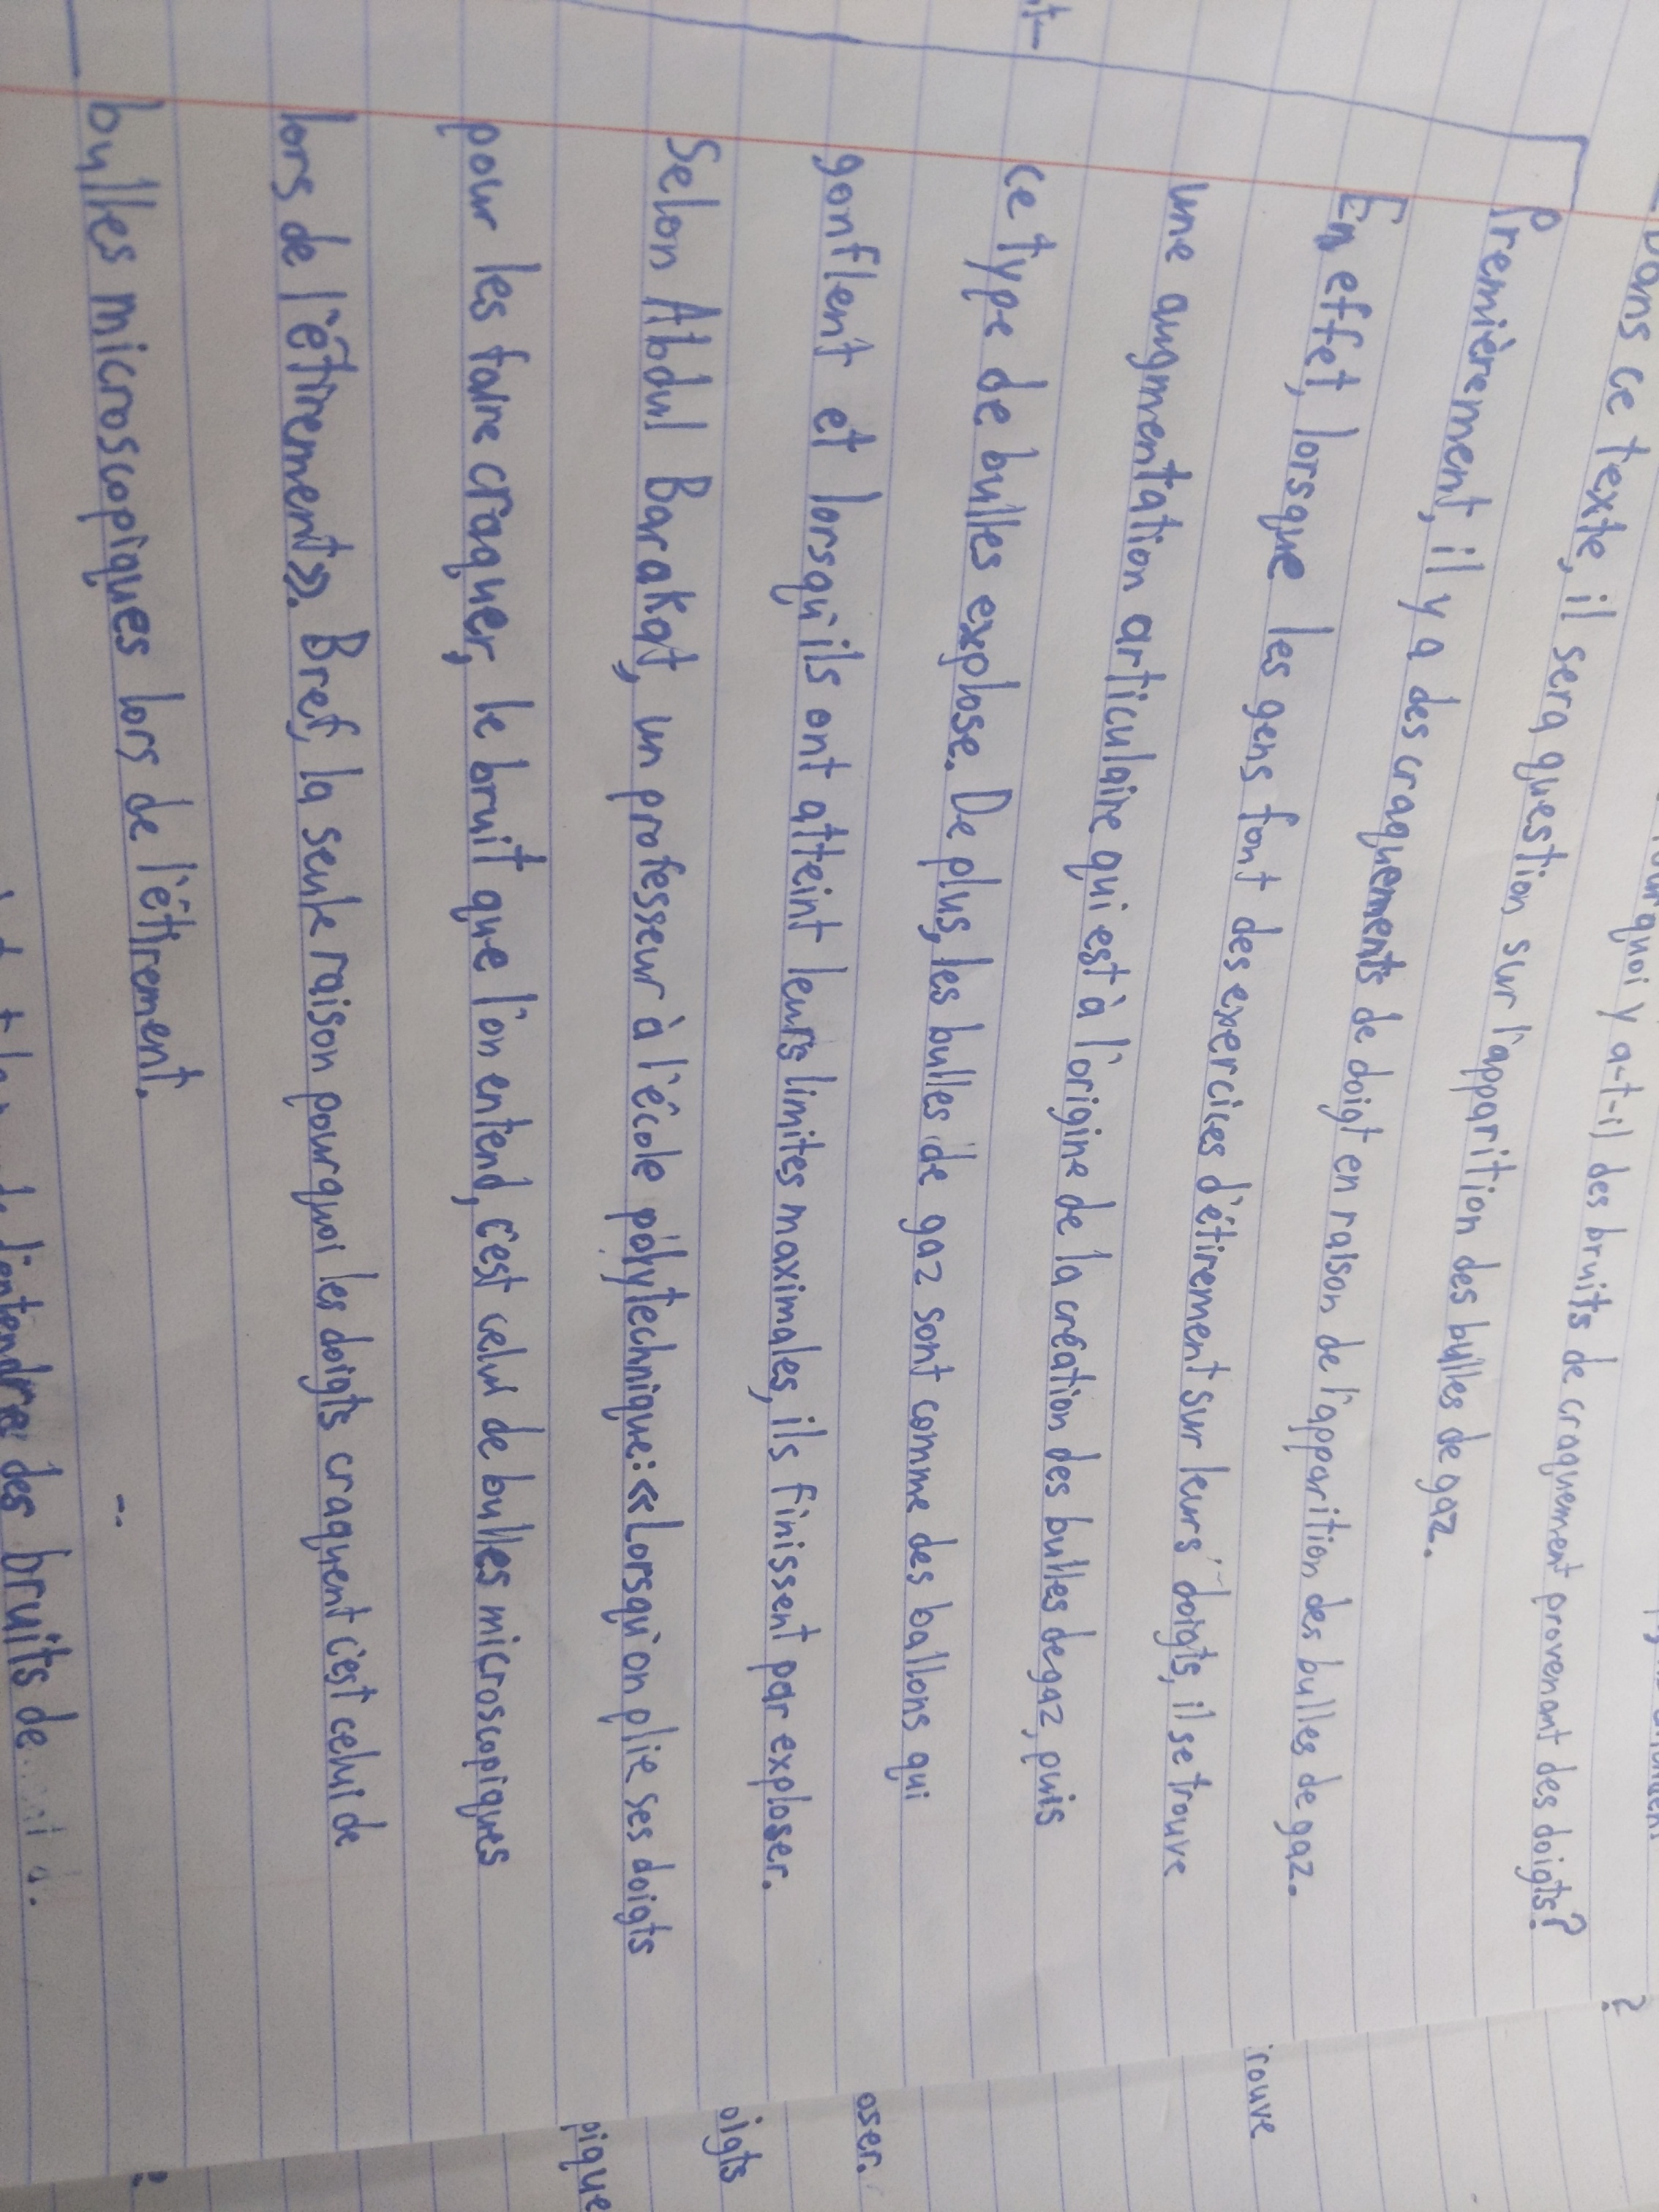 Pourquoi y a-t-il des bruits de craquement provenant des doigts?
Dans ce texte, il sera question sur l'apparition des bulles de gaz.
Premièrement, il y a des craquements de doigt en raison de l'apparition des bulles de gaz.
En effet, lorsque les gens font des exercices d'étirement sur leurs doigts, il se trouve
une augmentation articulaire qui est à l'origine de la création des bulles de gaz, puis
ce type de bulles explose. De plus, les bulles de gaz sont comme des ballons qui
gonflent et lorsqu'ils ont atteint leurs limites maximales, ils finissent par exploser.
Selon Abdul Barakat, un professeur à l'école polytechnique: «Lorsqu'on plie ses doigts
pour les faire craquer, le bruit que l'on entend, c'est celui de bulles microscopiques
lors de l'étirement». Bref, la seule raison pourquoi les doigts craquent c'est celui de
bulles microscopiques lors de l'étirement.
d'entendre des bruits de
?
rouve
oser.
oigts
pique